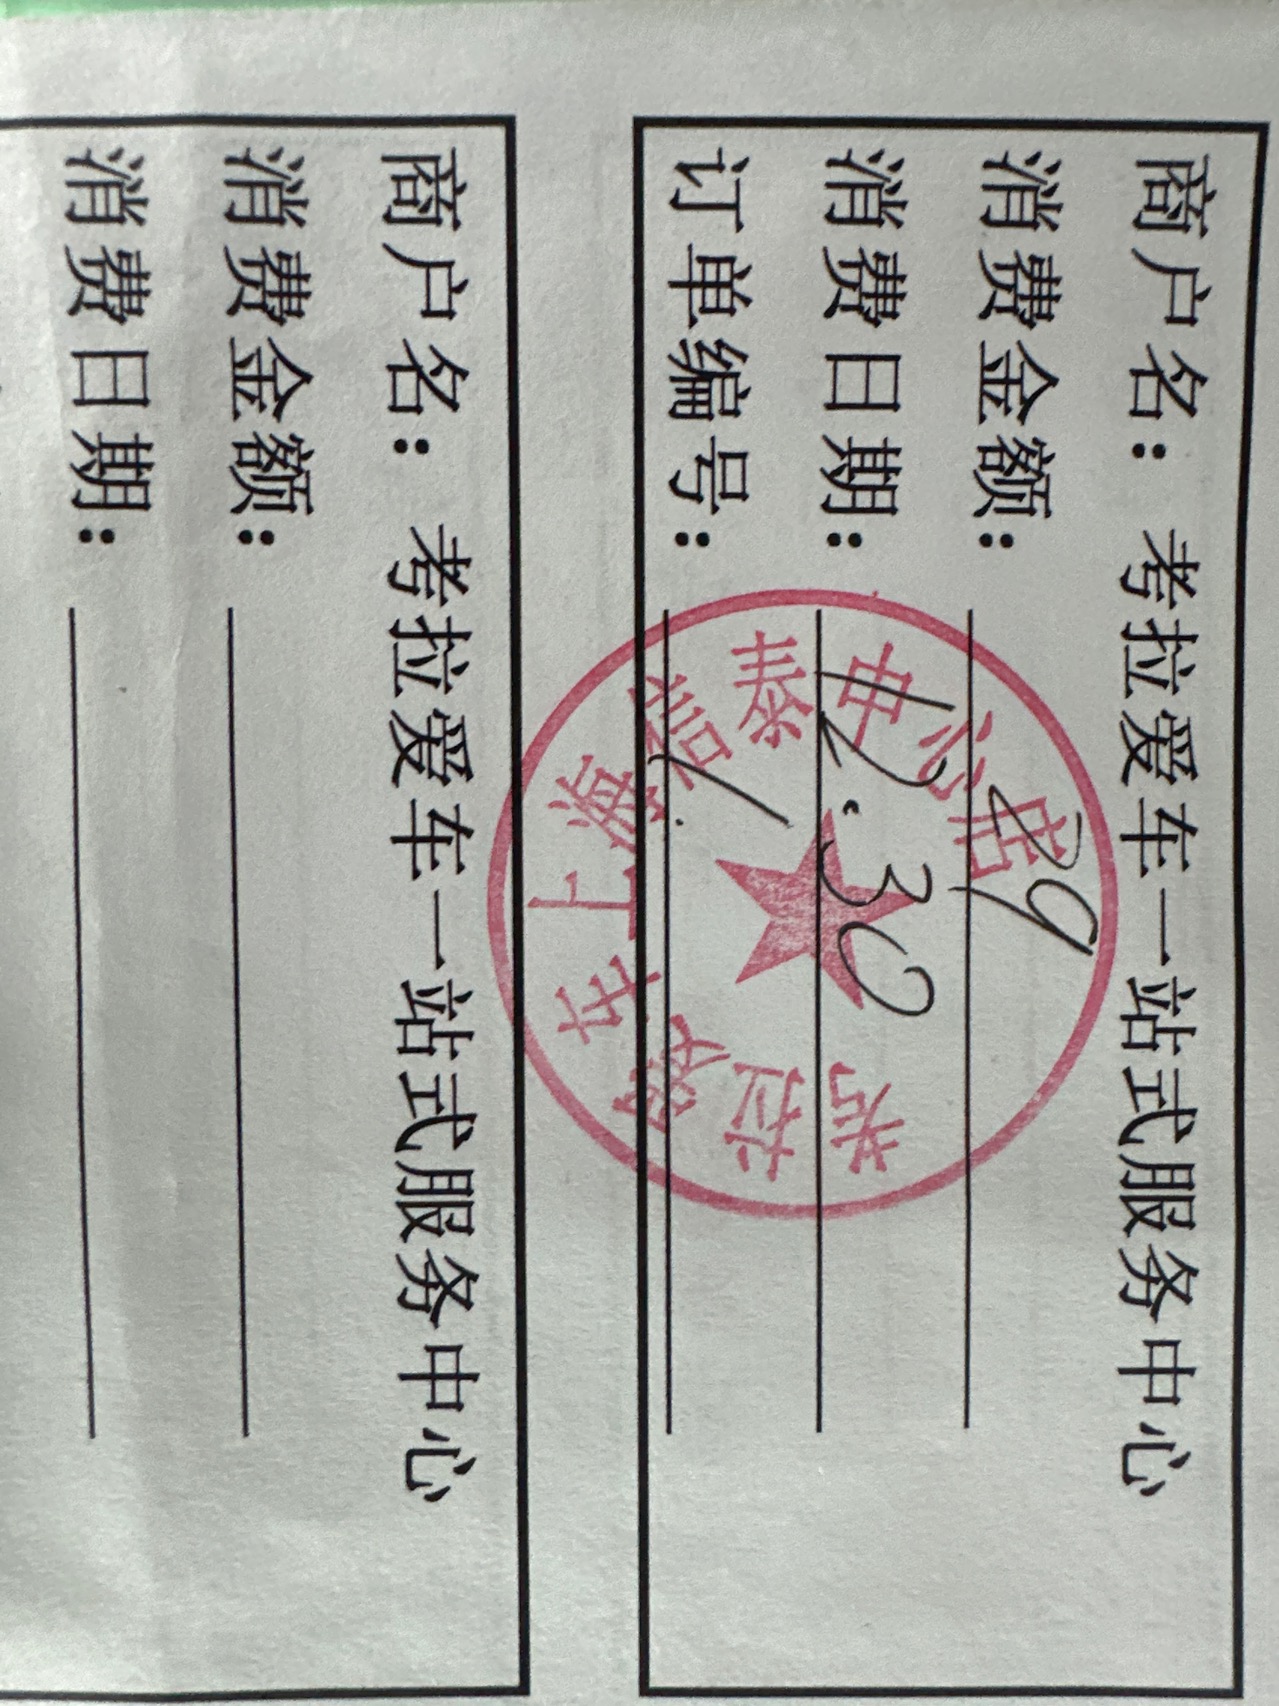 商户名：考拉爱车一站式服务中心
消费金额：29
消费日期：12.30
订单编号：/
考拉爱车上海信泰中心店
商户名：考拉爱车一站式服务中心
消费金额：
消费日期：